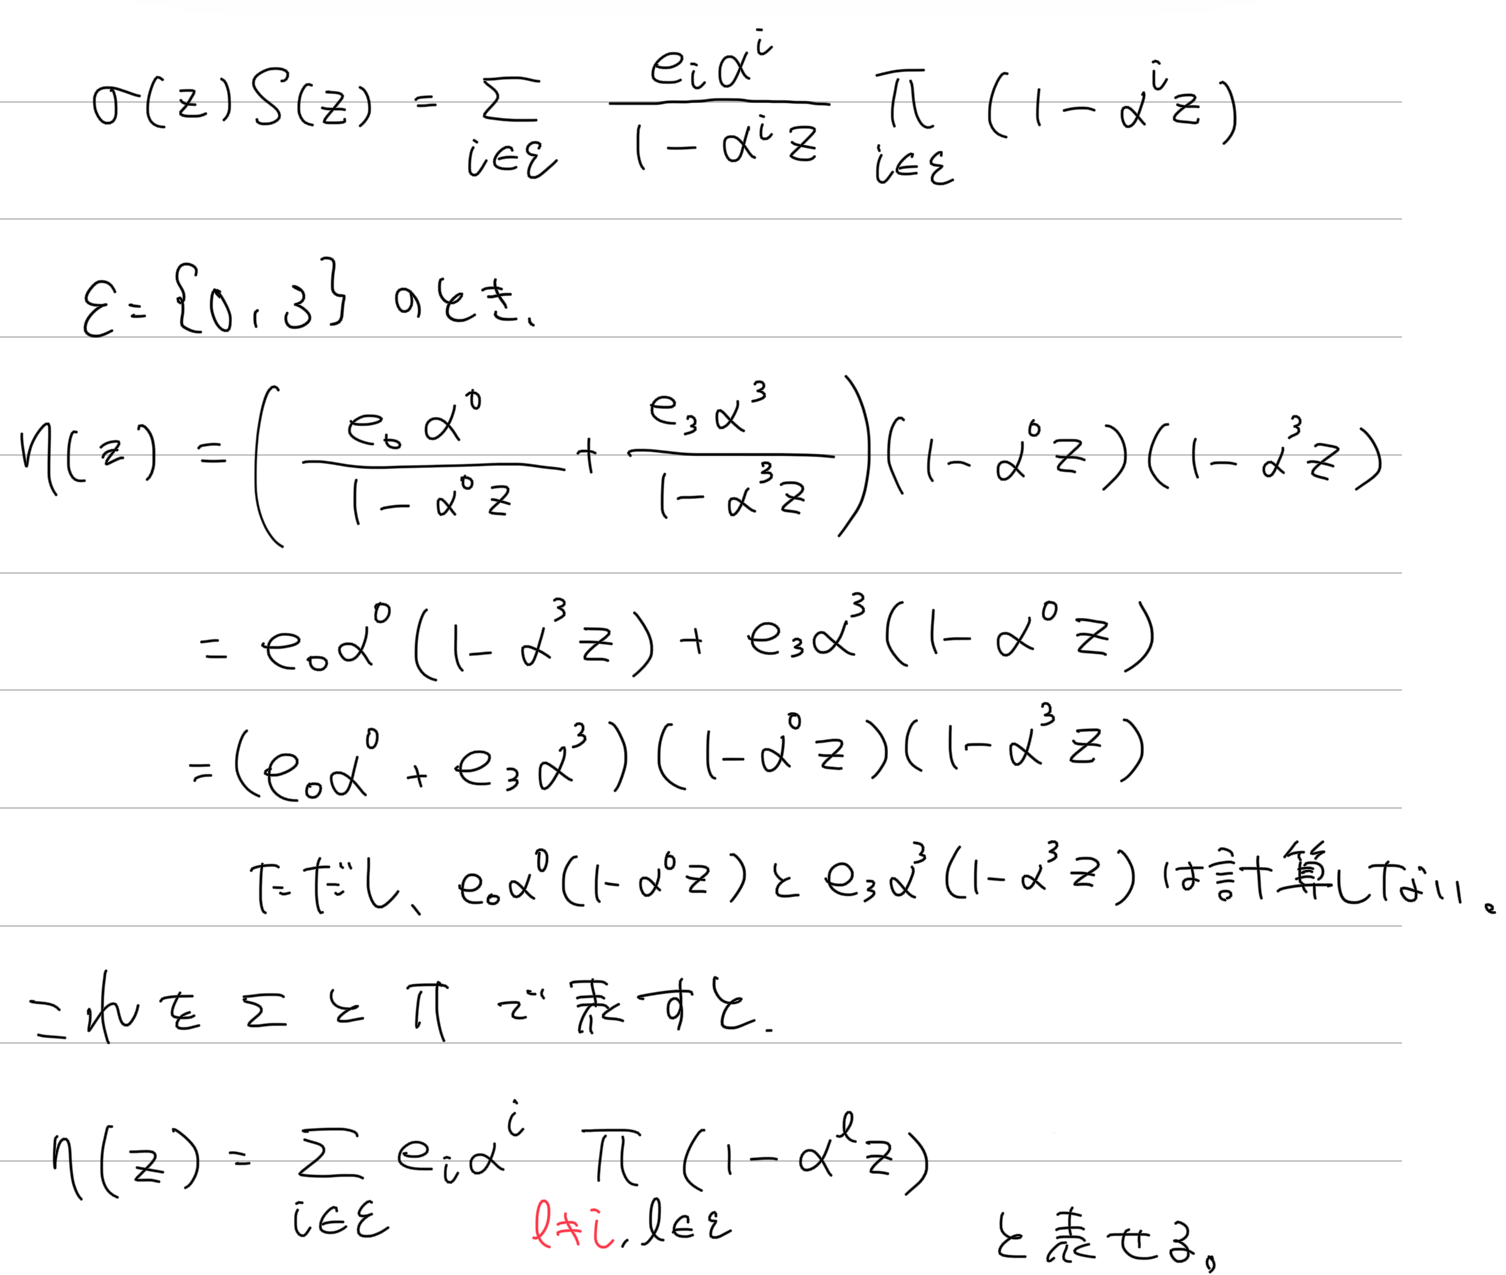 σ(z)S(z) = Σ_{i∈ε} \frac{e_i α^i}{1 - α^i z} Π_{i∈ε} (1 - α^i z)
ε = {0, 3} のとき、
η(z) = ( \frac{e_0 α^0}{1 - α^0 z} + \frac{e_3 α^3}{1 - α^3 z} ) (1 - α^0 z)(1 - α^3 z)
= e_0 α^0 (1 - α^3 z) + e_3 α^3 (1 - α^0 z)
= (e_0 α^0 + e_3 α^3)(1 - α^0 z)(1 - α^3 z)
ただし、e_0 α^0 (1 - α^0 z) と e_3 α^3 (1 - α^3 z) は計算しない。
これを Σ と Π で表すと.
η(z) = Σ_{i∈ε} e_i α^i Π_{l≠i, l∈ε} (1 - α^l z) と表せる。